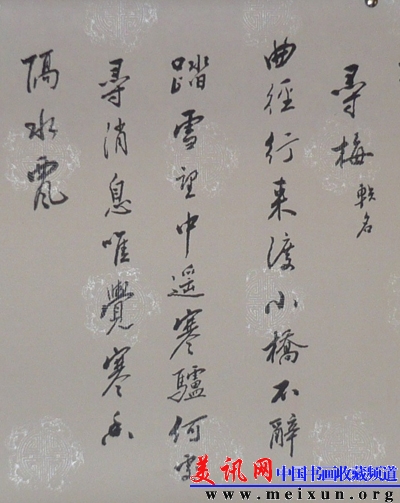 尋梅 軼名
曲徑行来渡小橋不辭
踏雪望中遥蹇驢何處
尋消息唯覺寒香
隔水飄
美讯网 中国书画收藏频道
www.meixun.org